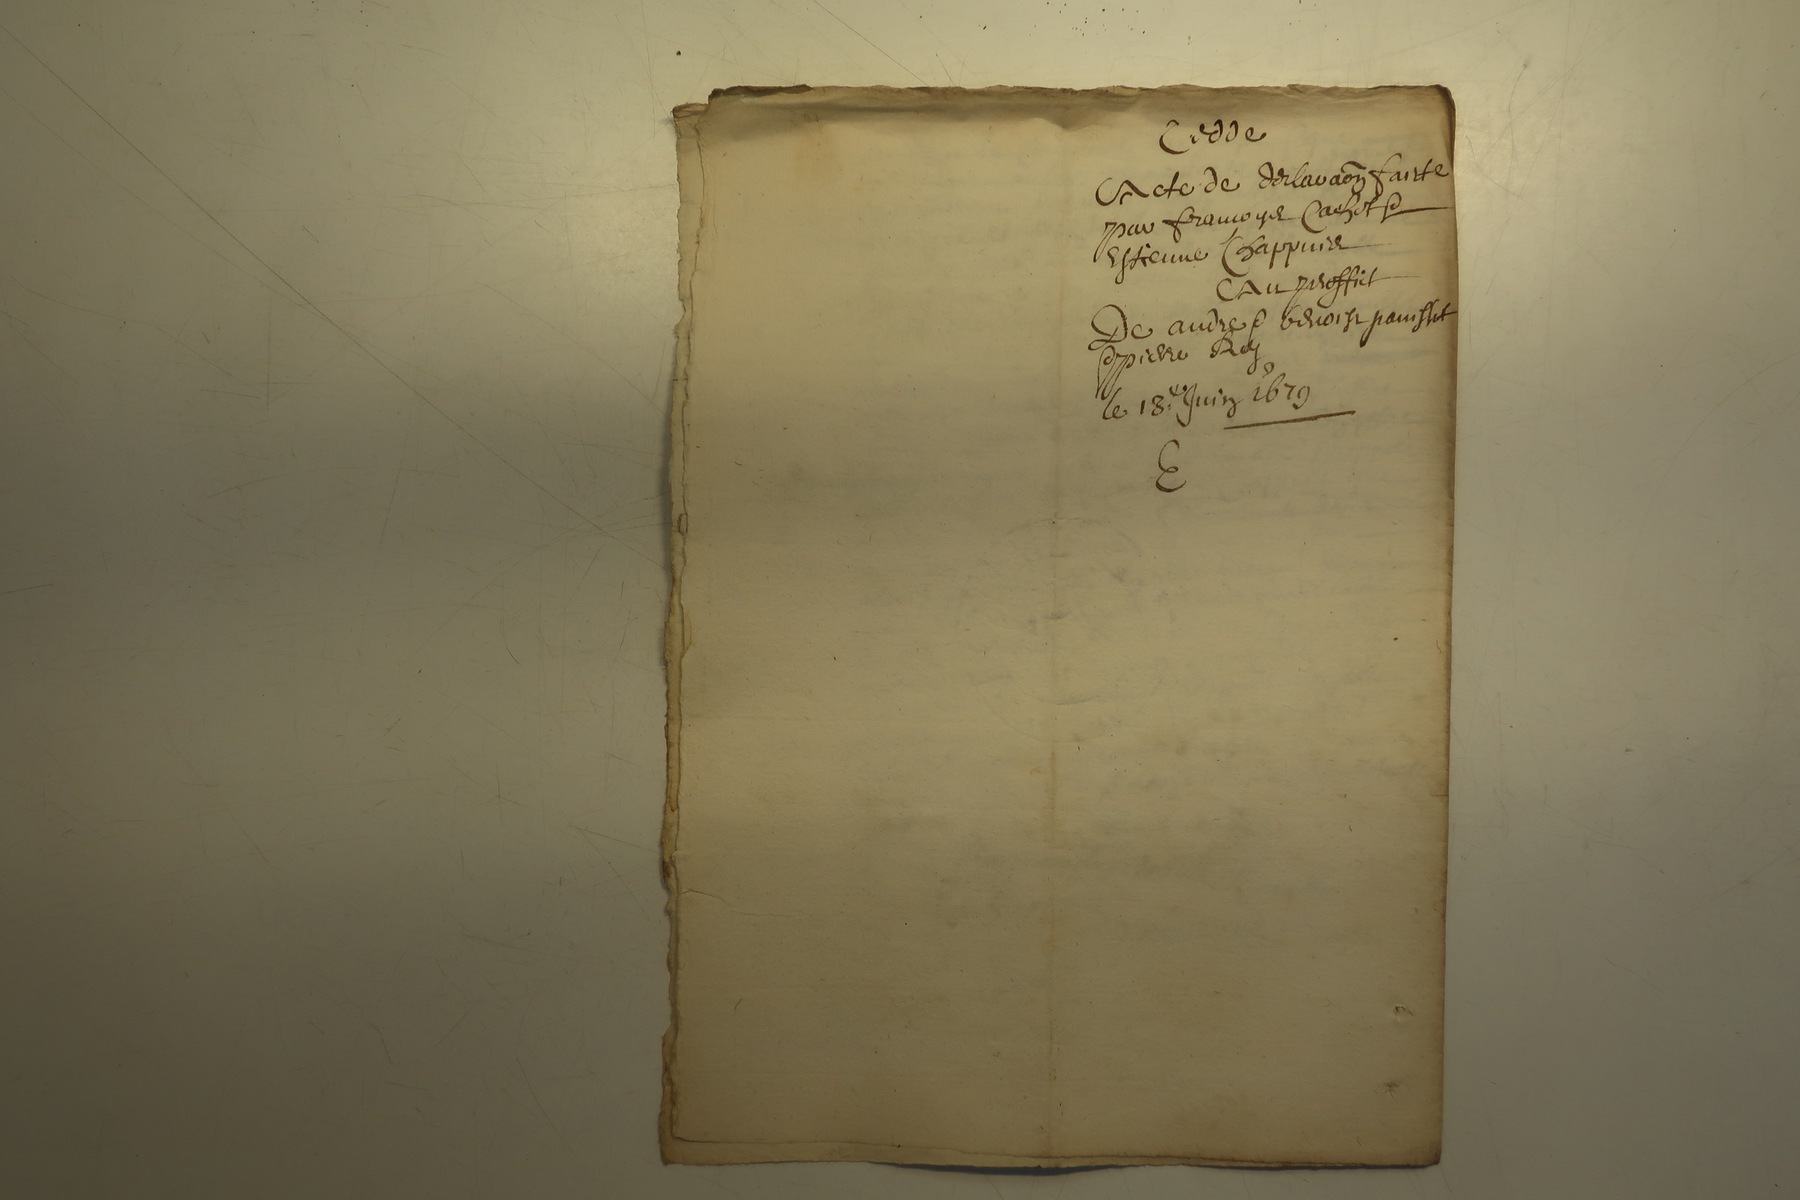 Cedde
Acte de declaraõn faicte
par françois Cachot &
Estienne Chappuis
Au proffict
De andre & benoist
& pierre Rey
le 18.e Juin 1679
E